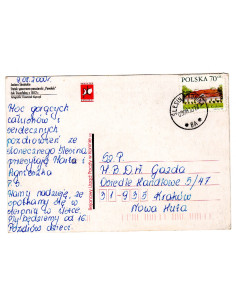 9.08.2000r.
Moc gorących
całusków i
serdecznych
pozdrowień ze
słonecznego Ślesina
przesyłają Marta i
Agnieszka
P.S.
Mamy nadzieję, że
spotkamy się w
sierpniu w
będziemy od 16.
Pozdrów dzieci.
POLSKA 70 gr
ŚLESIN
Sz.P.
M.B.D.M. Gazda
Osiedle Handlowe 5/47
31-935 Kraków
Nowa Huta